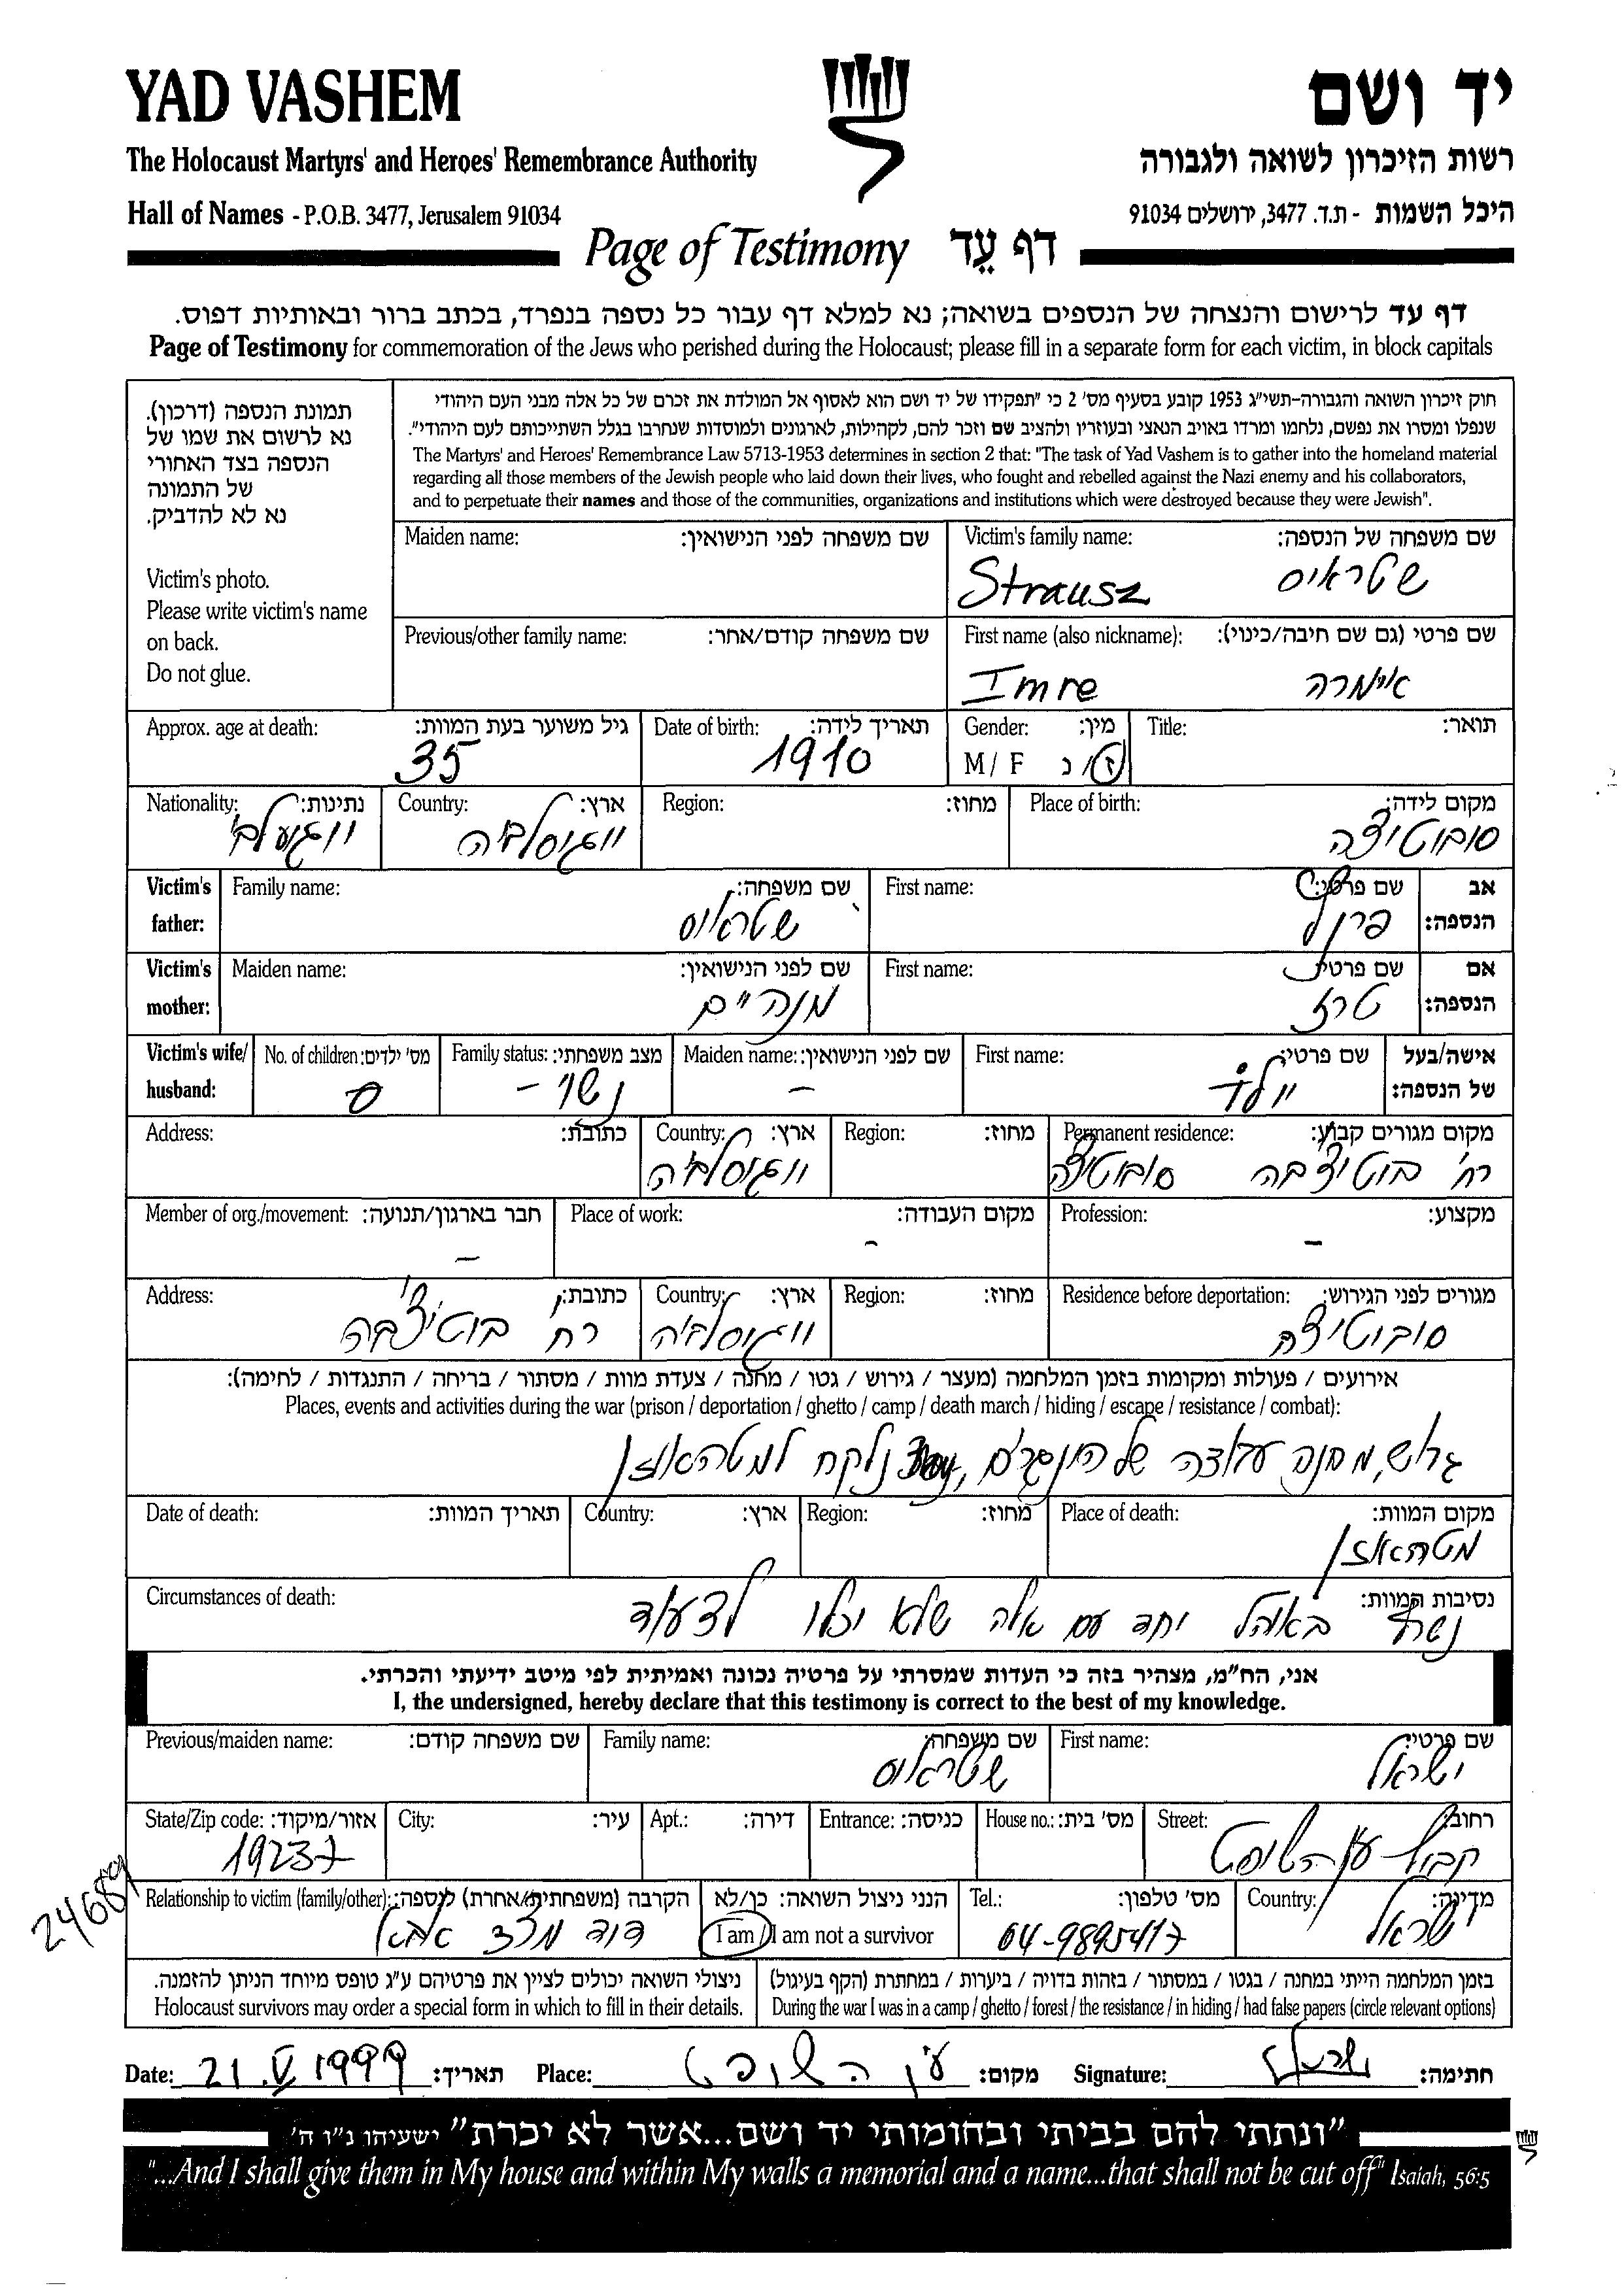 YAD VASHEM
יד ושם
The Holocaust Martyrs' and Heroes' Remembrance Authority
רשות הזיכרון לשואה ולגבורה
Hall of Names - P.O.B. 3477, Jerusalem 91034
היכל השמות - ת.ד. 3477, ירושלים 91034
Page of Testimony דף עֵד
דף עד לרישום והנצחה של הנספים בשואה; נא למלא דף עבור כל נספה בנפרד, בכתב ברור ובאותיות דפוס.
Page of Testimony for commemoration of the Jews who perished during the Holocaust; please fill in a separate form for each victim, in block capitals
חוק זיכרון השואה והגבורה-תשי"ג 1953 קובע בסעיף מס' 2 כי "תפקידו של יד ושם הוא לאסוף אל המולדת את זכרם של כל אלה מבני העם היהודי
שנפלו ומסרו את נפשם, נלחמו ומרדו באויב הנאצי ובעוזריו ולהציב שם וזכר להם, לקהילות, לארגונים ולמוסדות שנחרבו בגלל השתייכותם לעם היהודי".
The Martyrs' and Heroes' Remembrance Law 5713-1953 determines in section 2 that: "The task of Yad Vashem is to gather into the homeland material
regarding all those members of the Jewish people who laid down their lives, who fought and rebelled against the Nazi enemy and his collaborators,
and to perpetuate their names and those of the communities, organizations and institutions which were destroyed because they were Jewish".
תמונת הנספה (דרכון).
נא לרשום את שמו של
הנספה בצד האחורי
של התמונה
נא לא להדביק.
Victim's photo.
Please write victim's name
on back.
Do not glue.
Victim's family name: שם משפחה של הנספה:
Strausz שטראוס
Maiden name: שם משפחה לפני הנישואין:
First name (also nickname): שם פרטי (גם שם חיבה/כינוי):
Imre אימרה
Previous/other family name: שם משפחה קודם/אחר:
Title: תואר:
Gender: מין:
M / F ז/נ
Date of birth: תאריך לידה:
1910
Approx. age at death: גיל משוער בעת המוות:
35
Place of birth: מקום לידה:
סובוטיצה
Region: מחוז:
Country: ארץ:
יוגוסלביה
Nationality: נתינות:
יוגוסלבי
Victim's father: אב הנספה:
First name: שם פרטי:
Family name: שם משפחה:
שטראוס
Victim's mother: אם הנספה:
First name: שם פרטי:
טרז
Maiden name: שם לפני הנישואין:
מנהיים
Victim's wife/ husband: אישה/בעל של הנספה:
First name: שם פרטי:
Maiden name: שם לפני הנישואין:
-
Family status: מצב משפחתי:
נשוי -
No. of children: מס' ילדים:
0
Permanent residence: מקום מגורים קבוע:
רח' סובוטיצה
Region: מחוז:
Country: ארץ:
יוגוסלביה
Address: כתובת:
Profession: מקצוע:
-
Place of work: מקום העבודה:
-
Member of org./movement: חבר בארגון/תנועה:
-
Residence before deportation: מגורים לפני הגירוש:
סובוטיצה
Region: מחוז:
Country: ארץ:
יוגוסלביה
Address: כתובת:
רח'
אירועים / פעולות ומקומות בזמן המלחמה (מעצר / גירוש / גטו / מחנה / צעדת מוות / מסתור / בריחה / התנגדות / לחימה):
Places, events and activities during the war (prison / deportation / ghetto / camp / death march / hiding / escape / resistance / combat):
גרוש, מחנה עבודה של הונגרים, נלקח למטהאוזן
Place of death: מקום המוות:
מטהאוזן
Region: מחוז:
Country: ארץ:
Date of death: תאריך המוות:
Circumstances of death: נסיבות המוות:
באוהל יחד עם אלה שלא יכלו לצעוד
אני, הח"מ, מצהיר בזה כי העדות שמסרתי על פרטיה נכונה ואמיתית לפי מיטב ידיעתי והכרתי.
I, the undersigned, hereby declare that this testimony is correct to the best of my knowledge.
First name: שם פרטי:
ישראל
Family name: שם משפחה:
שטראוס
Previous/maiden name: שם משפחה קודם:
Street: רחוב:
קבוץ עין השופט
House no.: מס' בית:
Entrance: כניסה:
Apt.: דירה:
City: עיר:
State/Zip code: אזור/מיקוד:
19237
Country: מדינה:
ישראל
Tel.: מס' טלפון:
04-9895417
הנני ניצול השואה: כן/לא
I am / I am not a survivor
Relationship to victim (family/other): הקרבה (משפחתית/אחרת) לנספה:
דוד מצד אבא
בזמן המלחמה הייתי במחנה / בגטו / במסתור / בזהות בדויה / ביערות / במחתרת (הקף בעיגול)
During the war I was in a camp / ghetto / forest / the resistance / in hiding / had false papers (circle relevant options)
ניצולי השואה יכולים לציין את פרטיהם ע"ג טופס מיוחד הניתן להזמנה.
Holocaust survivors may order a special form in which to fill in their details.
Date: 21.V.1999 תאריך: Place: עין השופט מקום: Signature: חתימה:
"ונתתי להם בביתי ובחומותי יד ושם...אשר לא יכרת" ישעיהו נ"ו ה'
"...And I shall give them in My house and within My walls a memorial and a name...that shall not be cut off" Isaiah, 56:5